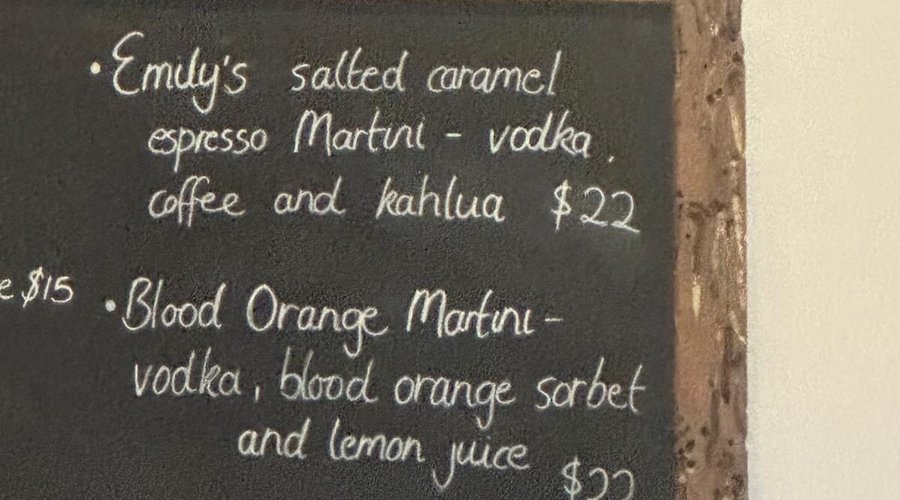 • Emily's salted caramel
espresso Martini - vodka,
coffee and kahlua $22
e $15
• Blood Orange Martini -
vodka, blood orange sorbet
and lemon juice
$22